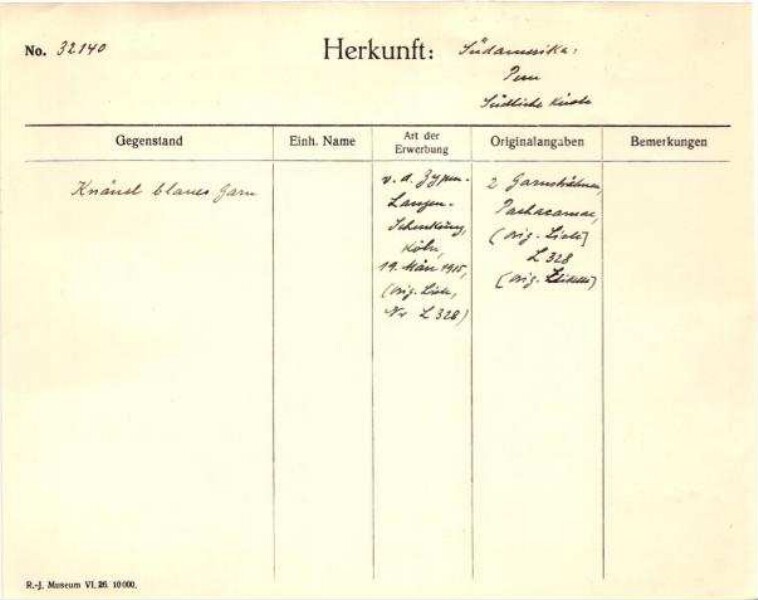 No. 32140
Herkunft: Südamerika:
Peru
Südliche Küste
Gegenstand
Einh. Name
Art der
Erwerbung
Originalangaben
Bemerkungen
Knäuel blaues Garn
v. d. Zypen-
Langen-
Schenkung,
Köln,
19. März 1915,
(Orig. Liste,
Nr L 328)
2 Garnsträhnen,
Pachacamac,
(Orig. Liste)
L 328
(Orig. Etikette)
R.-J. Museum VI. 26. 10000.